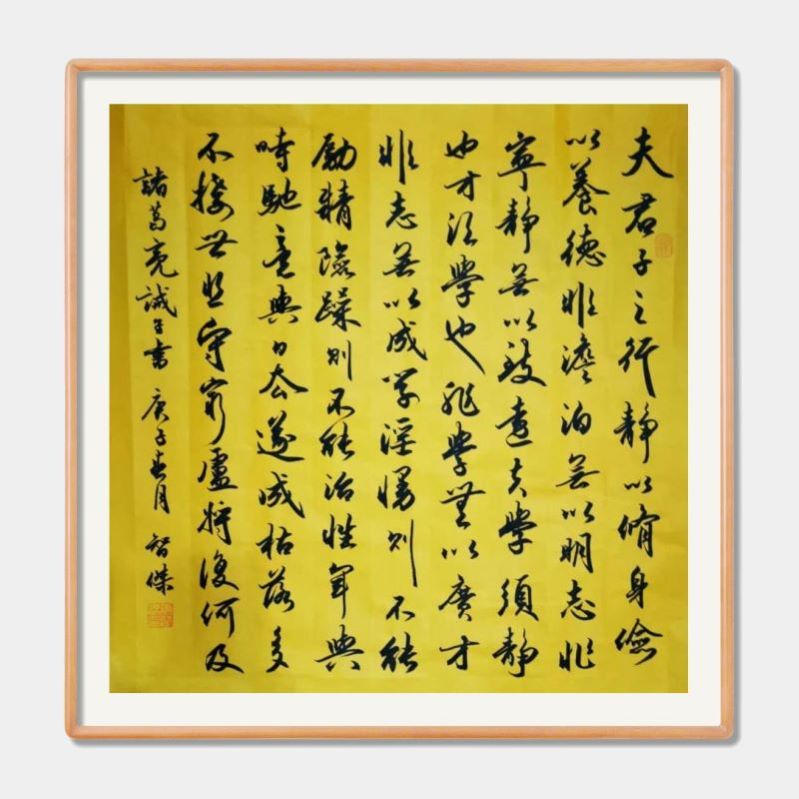 夫君子之行靜以脩身儉
以養德非澹泊無以明志非
寧靜無以致遠夫學須靜
也才須學也非學無以廣才
非志無以成学淫慢則不能
勵精險躁則不能治性年與
時馳意與日去遂成枯落多
不接世悲守窮廬將復何及
諸葛亮誡子書 庚子春月 智傑